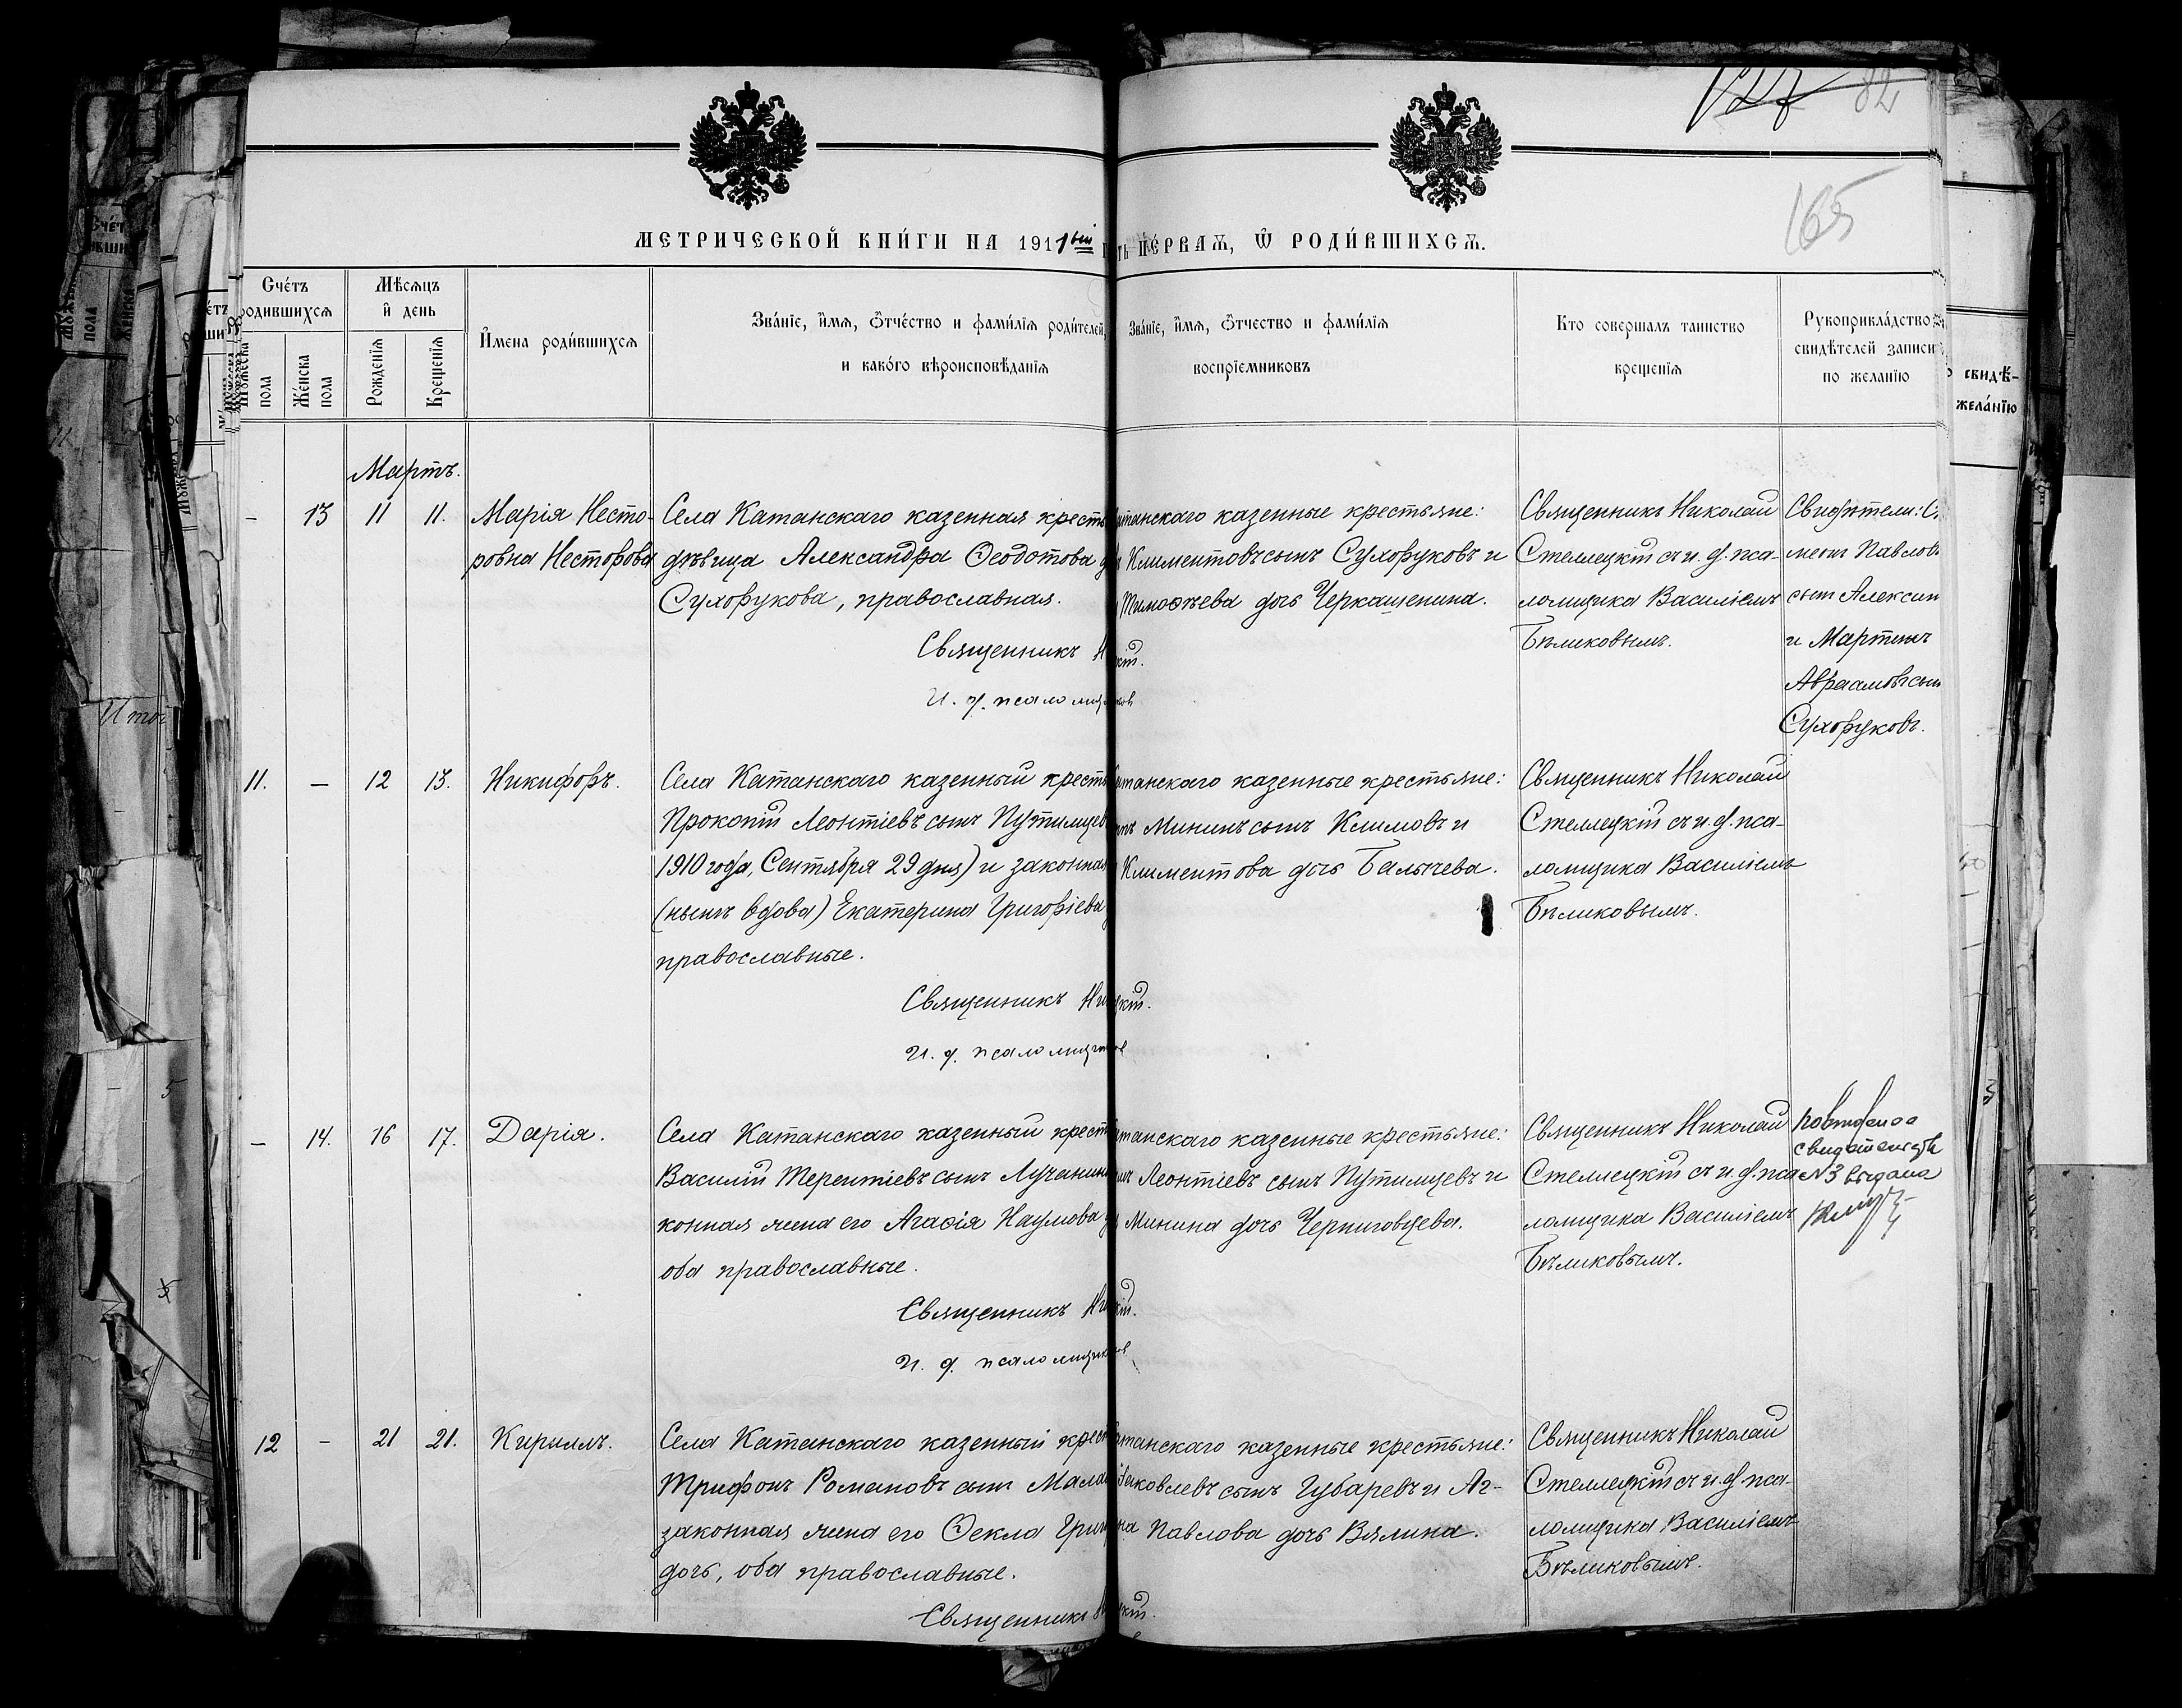 82
165
МЕТРИЧЕСКОЙ КНИ́ГИ НА 1911ый
ПЕ́РВАѦ, Ѡ РОДИ́ВШИХСѦ.
Сче́тъ родившихсѧ
Мѣсѧцъ и день
Мꙋжеска пола
Же́нска пола
Рожденїѧ
Крещенїѧ
Имена роди́вшихсѧ
Зва́нїе, имѧ, ѻтче́ство и фами́лїѧ роди́телей,
и како́го вѣроисповѣ́данїѧ
Зва́нїе, имѧ, ѻтчество и фами́лїѧ
воспрїемниковъ
Кто совершалъ таинство
крещенїѧ
Рукоприкла́дство
свидѣтелей записи
по желанїю
Мартъ.
– 13 11 11. Марія Несто-
ровна Несторова
Села Катанскаго казенная кресть
дѣвица Александра Ѳеодотова
Сухорукова, православная.
Священникъ
И. д. псаломщ
танскаго казенные крестьяне:
Климентовъ сынъ Сухоруковъ и
Тимоѳеева дочь Черкашенина.
Священникъ Николай
Стеллецкій съ и. д. пса-
ломщика Василіемъ
Бѣликовымъ.
Свидѣтели:
Павлов
сын Алексин
и Мартинъ
Авраамовъ сын
Сухоруковъ.
11. – 12 13. Никифоръ.
Села Катанскаго казенный кресть
Прокопій Леонтіевъ сынъ Путимцев
1910 года, Сентября 29 дня) и законная
(нынѣ вдова) Екатерина Григоріева
православные.
Священникъ Ни
И. д. псаломщ
танскаго казенные крестьяне:
Мининъ сынъ Климовъ и
Климентова дочь Балычева.
Священникъ Николай
Стеллецкій съ и. д. пса-
ломщика Василіемъ
Бѣликовымъ.
– 14. 16 17. Дарія.
Села Катанскаго казенный крест
Василій Терентіевъ сынъ Лучанин
конная жена его Агаѳія Наумова
оба православные.
Священникъ Ни
И. д. псаломщ
танскаго казенные крестьяне:
Леонтіевъ сынъ Путимцевъ и
Минина дочь Черниговцева.
Священникъ Николай
Стеллецкій съ и. д. пса-
ломщика Василіемъ
Бѣликовымъ.
№3 выдана
12 – 21 21. Кириллъ.
Села Катанскаго казенный крест
Трифонъ Романовъ сын Мала
законная жена его Ѳекла Григ
дочь, оба православные.
Священникъ
танскаго казенные крестьяне:
Іаковлевъ сынъ Губаревъ и Аг-
на Павлова дочь Вялина.
Священникъ Николай
Стеллецкій съ и. д. пса-
ломщика Василіемъ
Бѣликовымъ.
свидѣ-
жела́нїю